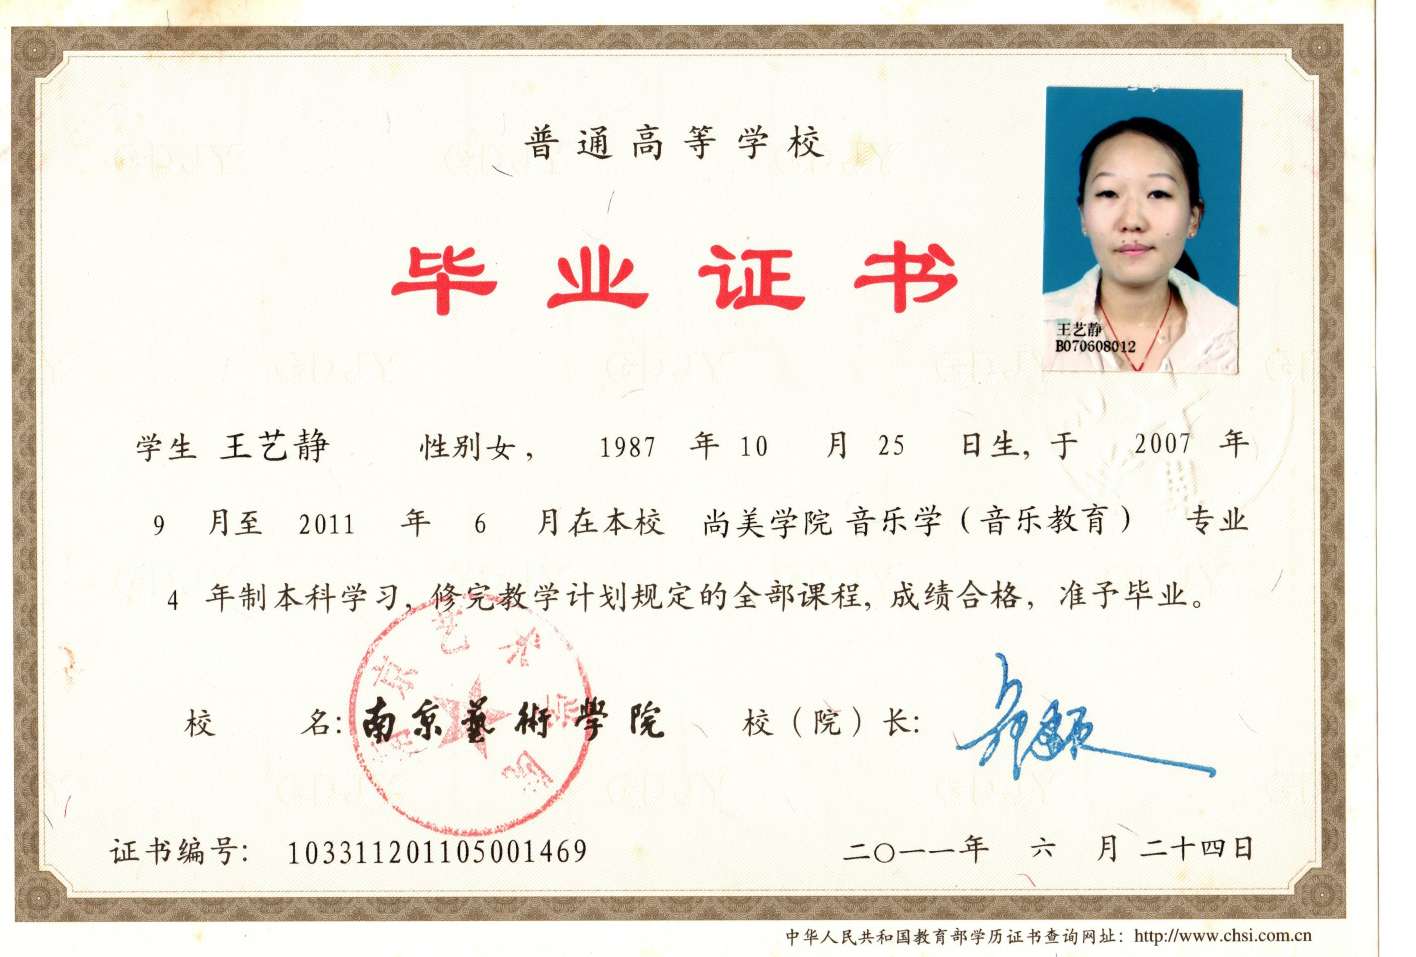 普通高等学校
毕业证书
王艺静
B070608012
学生 王艺静 性别女， 1987 年 10 月 25 日生，于 2007 年
9 月至 2011 年 6 月在本校 尚美学院 音乐学（音乐教育） 专业
4 年制本科学习，修完教学计划规定的全部课程，成绩合格，准予毕业。
校 名：南京藝術學院 校（院）长：
南京艺术学院
证书编号： 103311201105001469 二〇一一年 六 月 二十四日
中华人民共和国教育部学历证书查询网址：http://www.chsi.com.cn